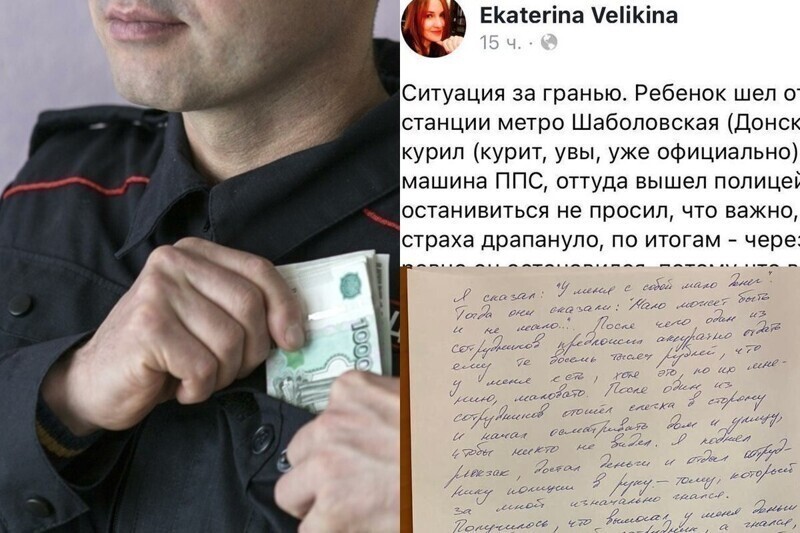 Ekaterina Velikina
15 ч.
Ситуация за гранью. Ребенок шел от
станции метро Шаболовская (Донск
курил (курит, увы, уже официально)
машина ППС, оттуда вышел полицей
останивиться не просил, что важно,
страха драпануло, по итогам - через
1000
Я сказал: "У меня с собой мало денег".
Тогда они сказали: "Мало может быть
и не мало..." После чего один из
сотрудников предложил аккуратно отдать
ему те восемь тысяч рублей, что
у меня есть, хотя это, по их мне-
нию, маловато. После один из
сотрудников отошел слегка в сторону
и начал осматривать дом и улицу,
чтобы никто не видел. Я поднял
рюкзак, достал деньги и отдал сотруд-
нику полиции в руку - тому, который
за мной изначально гнался.
Получилось, что вымогал у меня деньги
сотрудник, а гнался,